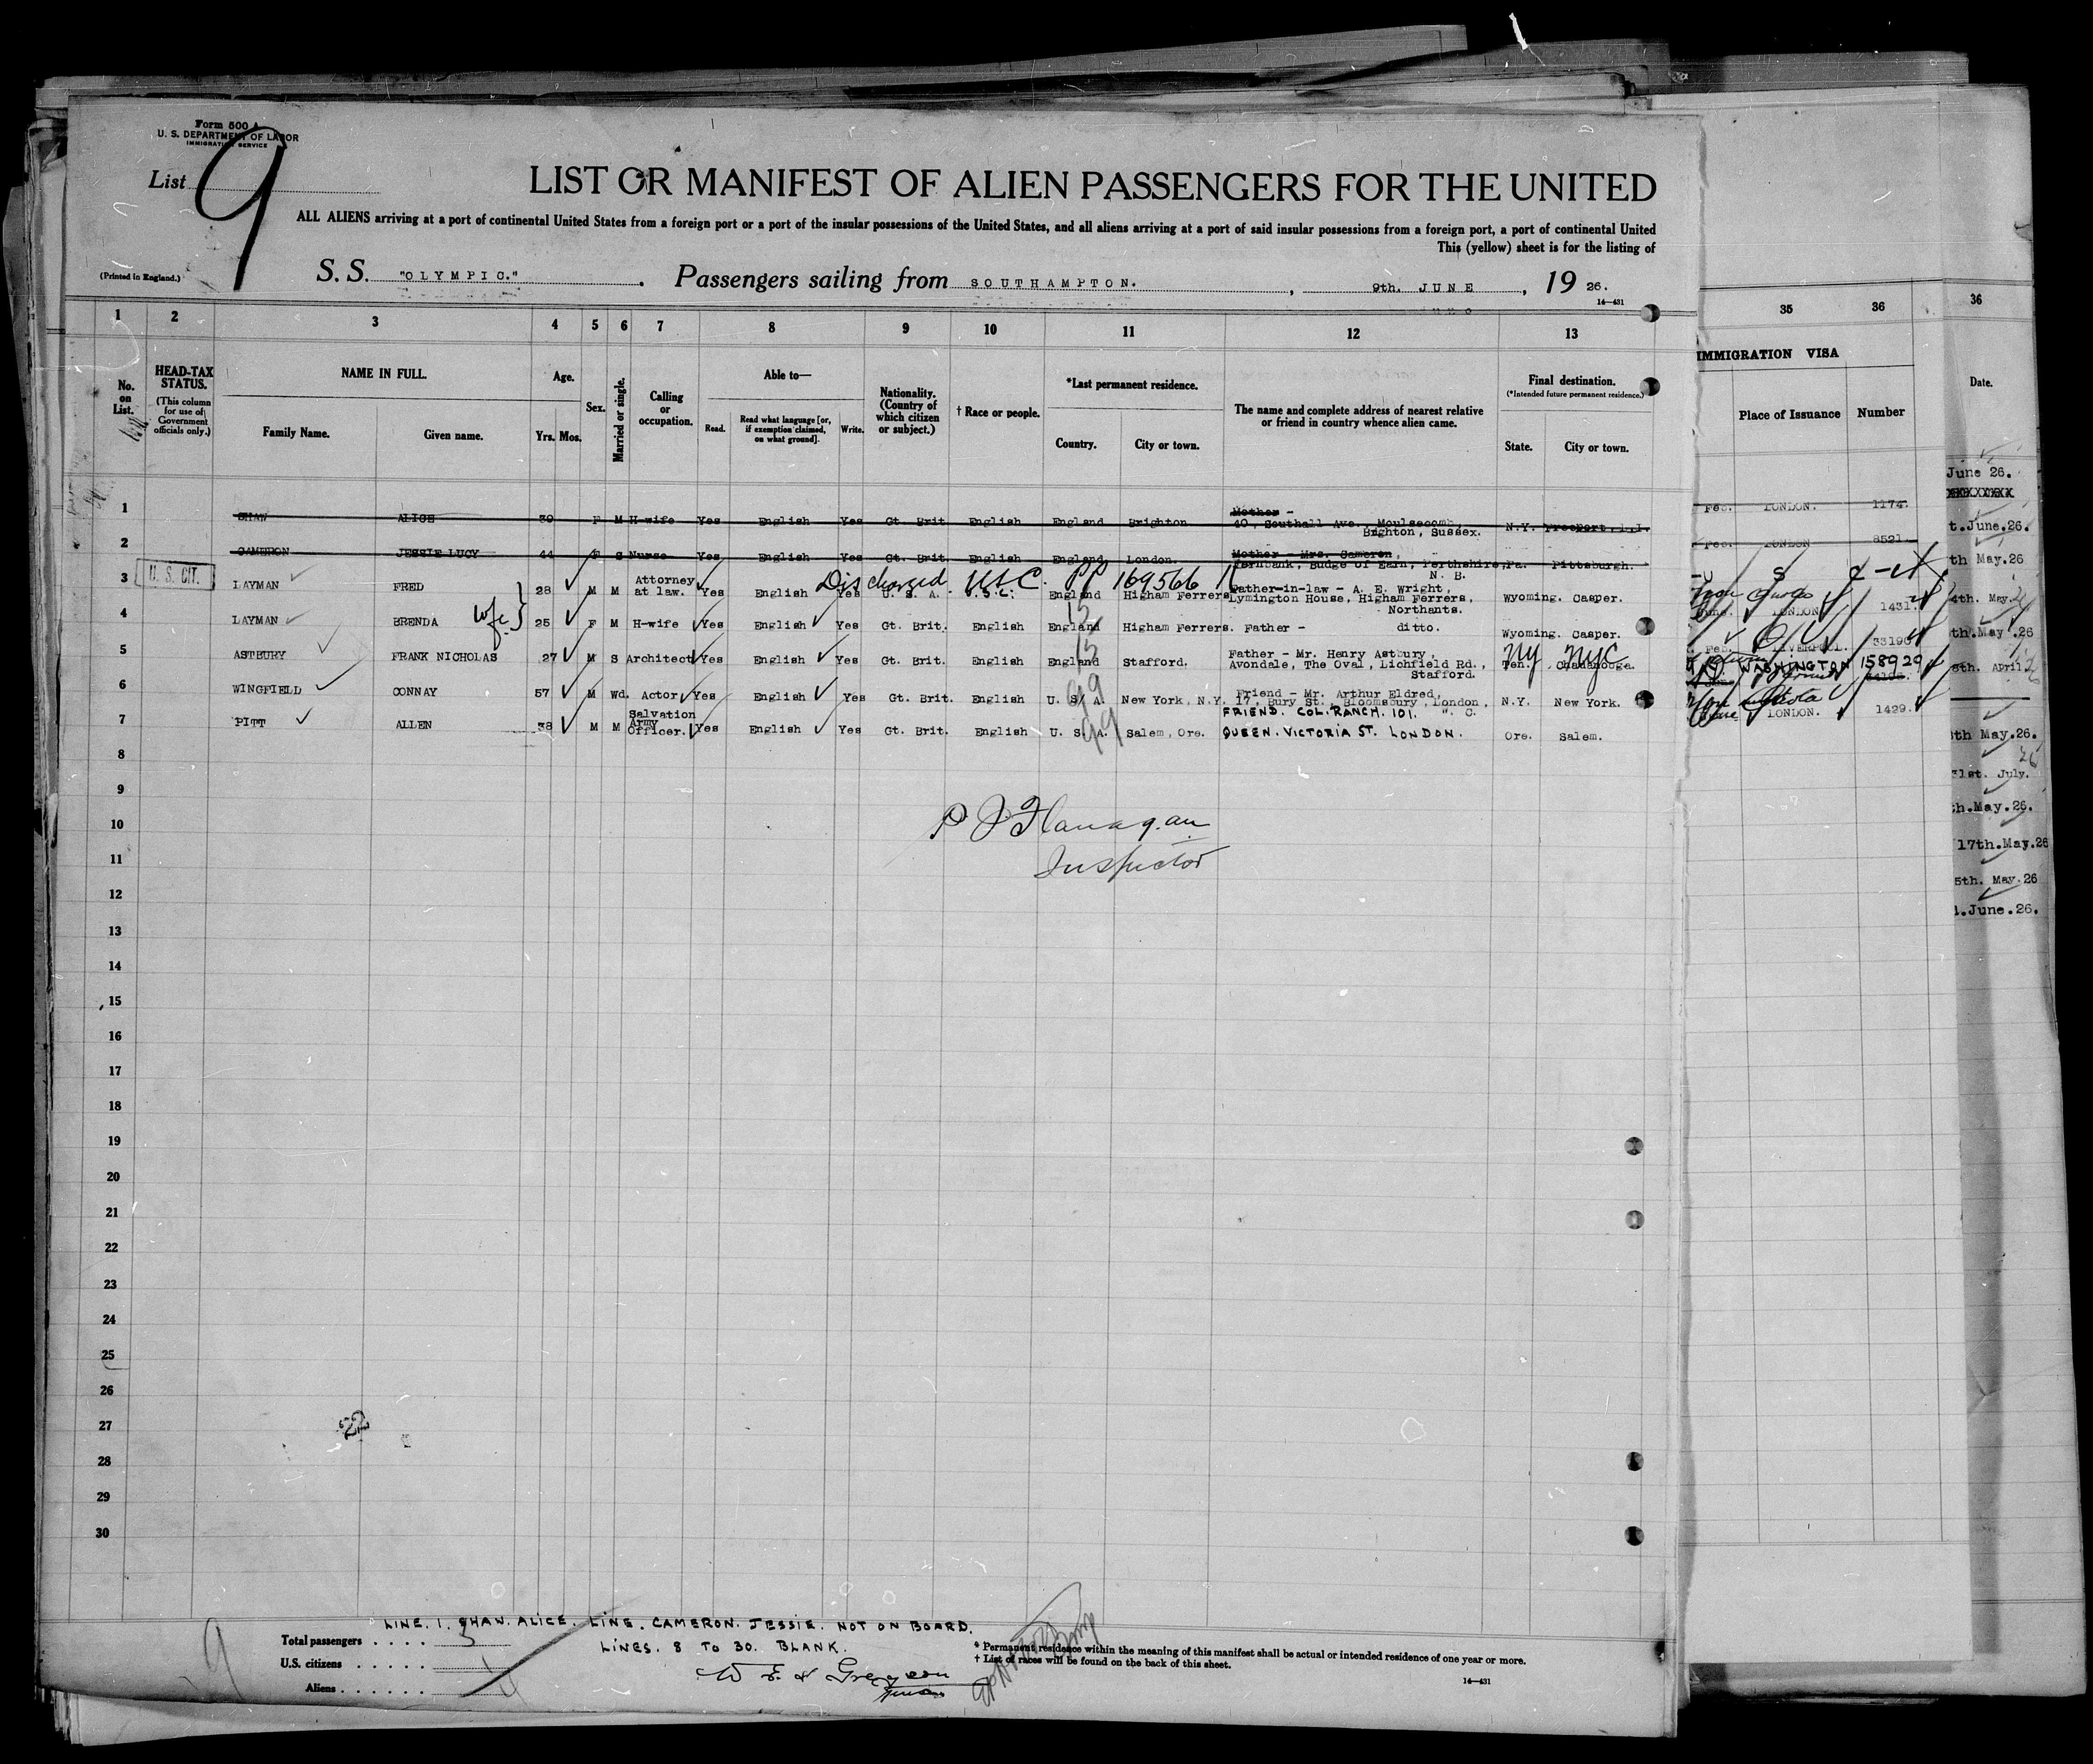 Form 500 A
U. S. DEPARTMENT OF LABOR
IMMIGRATION SERVICE
List 9
LIST OR MANIFEST OF ALIEN PASSENGERS FOR THE UNITED
ALL ALIENS arriving at a port of continental United States from a foreign port or a port of the insular possessions of the United States, and all aliens arriving at a port of said insular possessions from a foreign port, a port of continental United
This (yellow) sheet is for the listing of
(Printed in England.)
S. S. "OLYMPIC." Passengers sailing from SOUTHAMPTON. , 9th. JUNE , 19 26.
14—431
1 2 3 4 5 6 7 8 9 10 11 12 13
No. on List.
HEAD-TAX STATUS. (This column for use of Government officials only.)
NAME IN FULL.
Family Name. Given name.
Age. Yrs. Mos.
Sex.
Married or single.
Calling or occupation.
Able to—
Read. Read what language [or, if exemption claimed, on what ground]. Write.
Nationality. (Country of which citizen or subject.)
† Race or people.
*Last permanent residence.
Country. City or town.
The name and complete address of nearest relative or friend in country whence alien came.
Final destination. (*Intended future permanent residence.)
State. City or town.
35 36 36
IMMIGRATION VISA
Place of Issuance Number Date.
1 SHAW ALICE 30 F M H-wife Yes English Yes Gt. Brit English England Brighton Mother - 40, Southall Ave., Moulsecomb, Brighton, Sussex. N.Y. Freeport, L.I. Feb. LONDON. 1174.
2 CAMERON JESSIE LUCY 44 F S Nurse Yes English Yes Gt. Brit English England London. Mother - Mrs. Cameron, Fernbank, Budge of Earn, Perthshire, N. B. Pa. Pittsburgh. Feb. LONDON 8521
3 U. S. CIT. LAYMAN FRED 28 M M Attorney at law. Yes English Yes U. S. A. U.S.C. England Higham Ferrers Father-in-law - A. E. Wright, Lymington House, Higham Ferrers, Northants. Wyoming. Casper.
Discharged U S C. PP 169566
4 LAYMAN BRENDA wife 25 F M H-wife Yes English Yes Gt. Brit. English England Higham Ferrers. Father - ditto. Wyoming. Casper. June. LONDON 1431.
5 ASTBURY FRANK NICHOLAS 27 M S Architect Yes English Yes Gt. Brit. English England Stafford. Father - Mr. Henry Astbury, Avondale, The Oval, Lichfield Rd., Stafford. Ten. Chadanooga. NY NYC Feb. LIVERPOOL. 33190
6 WINGFIELD CONNAY 57 M Wd. Actor Yes English Yes Gt. Brit. English U. S. A. New York, N.Y. Friend - Mr. Arthur Eldred, 17, Bury St. Bloomsbury, London, W. C. N.Y. New York. WASHINGTON 158929
7 PITT ALLEN 38 M M Salvation Army Officer. Yes English Yes Gt. Brit. English U. S. A. Salem, Ore. FRIEND. COL. RANCH. 101. QUEEN. VICTORIA ST. LONDON. Ore. Salem. LONDON. 1429.
15
15
99
99
8
9
10
11
12
13
14
15
16
17
18
19
20
21
22
23
24
25
26
27
28
29
30
P J Flanagan
Inspector
22
June 26.
XXXXXXXX
t. June. 26.
th May. 26
4th. May.
th. May. 26
8th. April.
th May. 26.
31st. July.
h. May. 26.
17th. May. 26
5th. May 26
1. June. 26.
LINE. 1. SHAW. ALICE. LINE. CAMERON. JESSIE. NOT ON BOARD.
LINES. 8 TO 30. BLANK.
Total passengers . . . . 5
U.S. citizens . . . . .
Aliens . . . . . .
9
* Permanent residence within the meaning of this manifest shall be actual or intended residence of one year or more.
† List of races will be found on the back of this sheet.
14—431